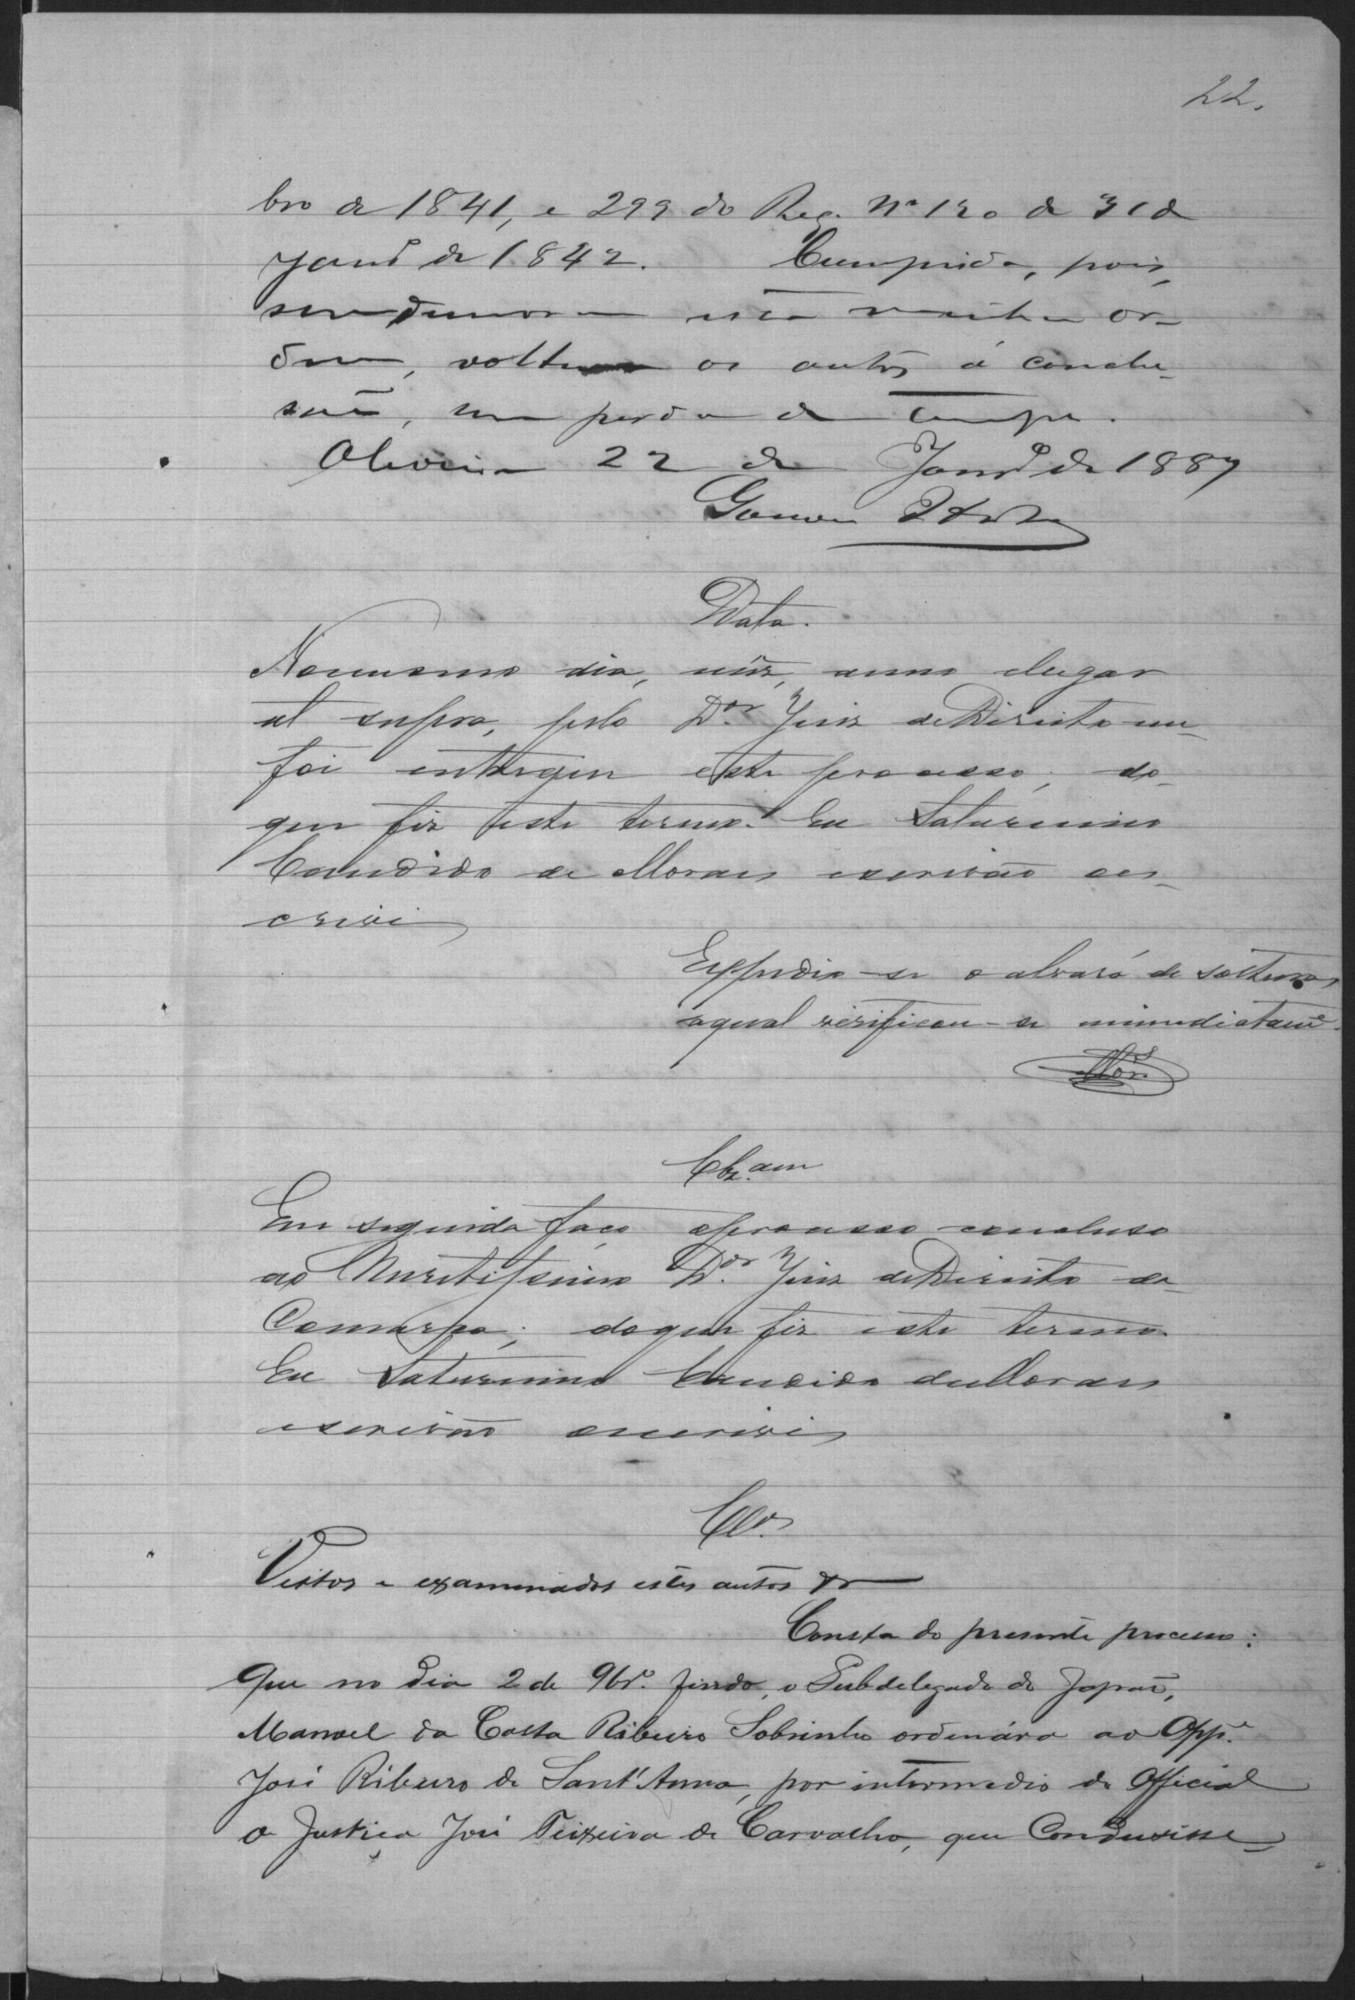 22.
bro de 1841, e 299 do Reg. Nº 120 de 31 de
Janrº de 1842. Cumprida, pois,
sem demora esta minha or-
dem, voltem os autos á conclu-
são, sem perda de tempo.
Oliveira 22 de Janrº de 1887
Gomes
Data.
No mesmo dia, mêz, anno elugar
ut supra, pelo Dor. Juiz deDireito me
foi entregue este processo; do
que fiz este termo. Eu Saturnino
Candido de Moraes escrivão es-
crivi
Expedio-se o alvará de soltura,
aqual verificou-se immediatame.
Mors
Clzam
Em seguida faço oprocesso concluso
ao Meritissimo Dor. Juiz deDireito da
Comarca; doque fiz este termo.
Eu Saturnino Candido deMoraes
escrivão escrivi
Clos.
Vistos e examinados estes autos &
Consta do presente processo:
Que no dia 2 de 9bro. findo, o Subdelegado do Japão,
Manoel da Costa Ribeiro Sobrinho ordenára ao Appe.
José Ribeiro de Sant'Anna, por intermedio do Official
de Justiça José Teixeira de Carvalho, que conduzisse